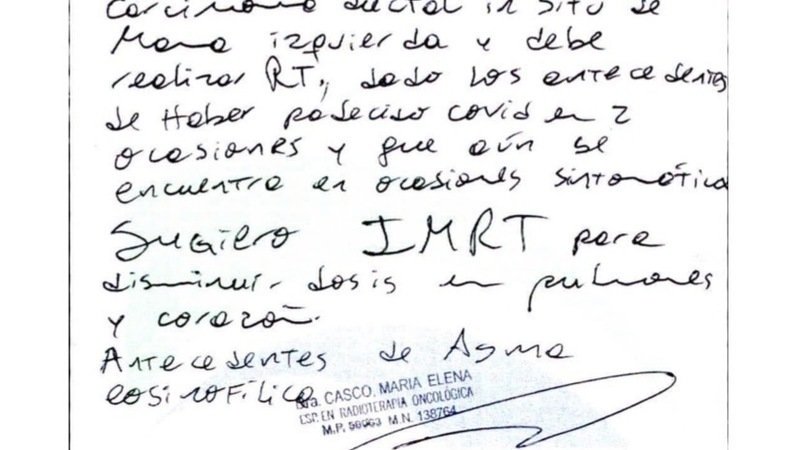 Carcinoma ductal in situ de
Mama izquierda y debe
realizar RT, dado los antecedentes
de Haber padecido covid en 2
ocasiones y que aún se
encuentra en ocasiones sintomática
Sugiero IMRT para
disminuir dosis en pulmones
y corazón.
Antecedentes de Asma
eosinofílica
Dra. CASCO. MARIA ELENA
ESP. EN RADIOTERAPIA ONCOLÓGICA
M.P. M.N. 138764